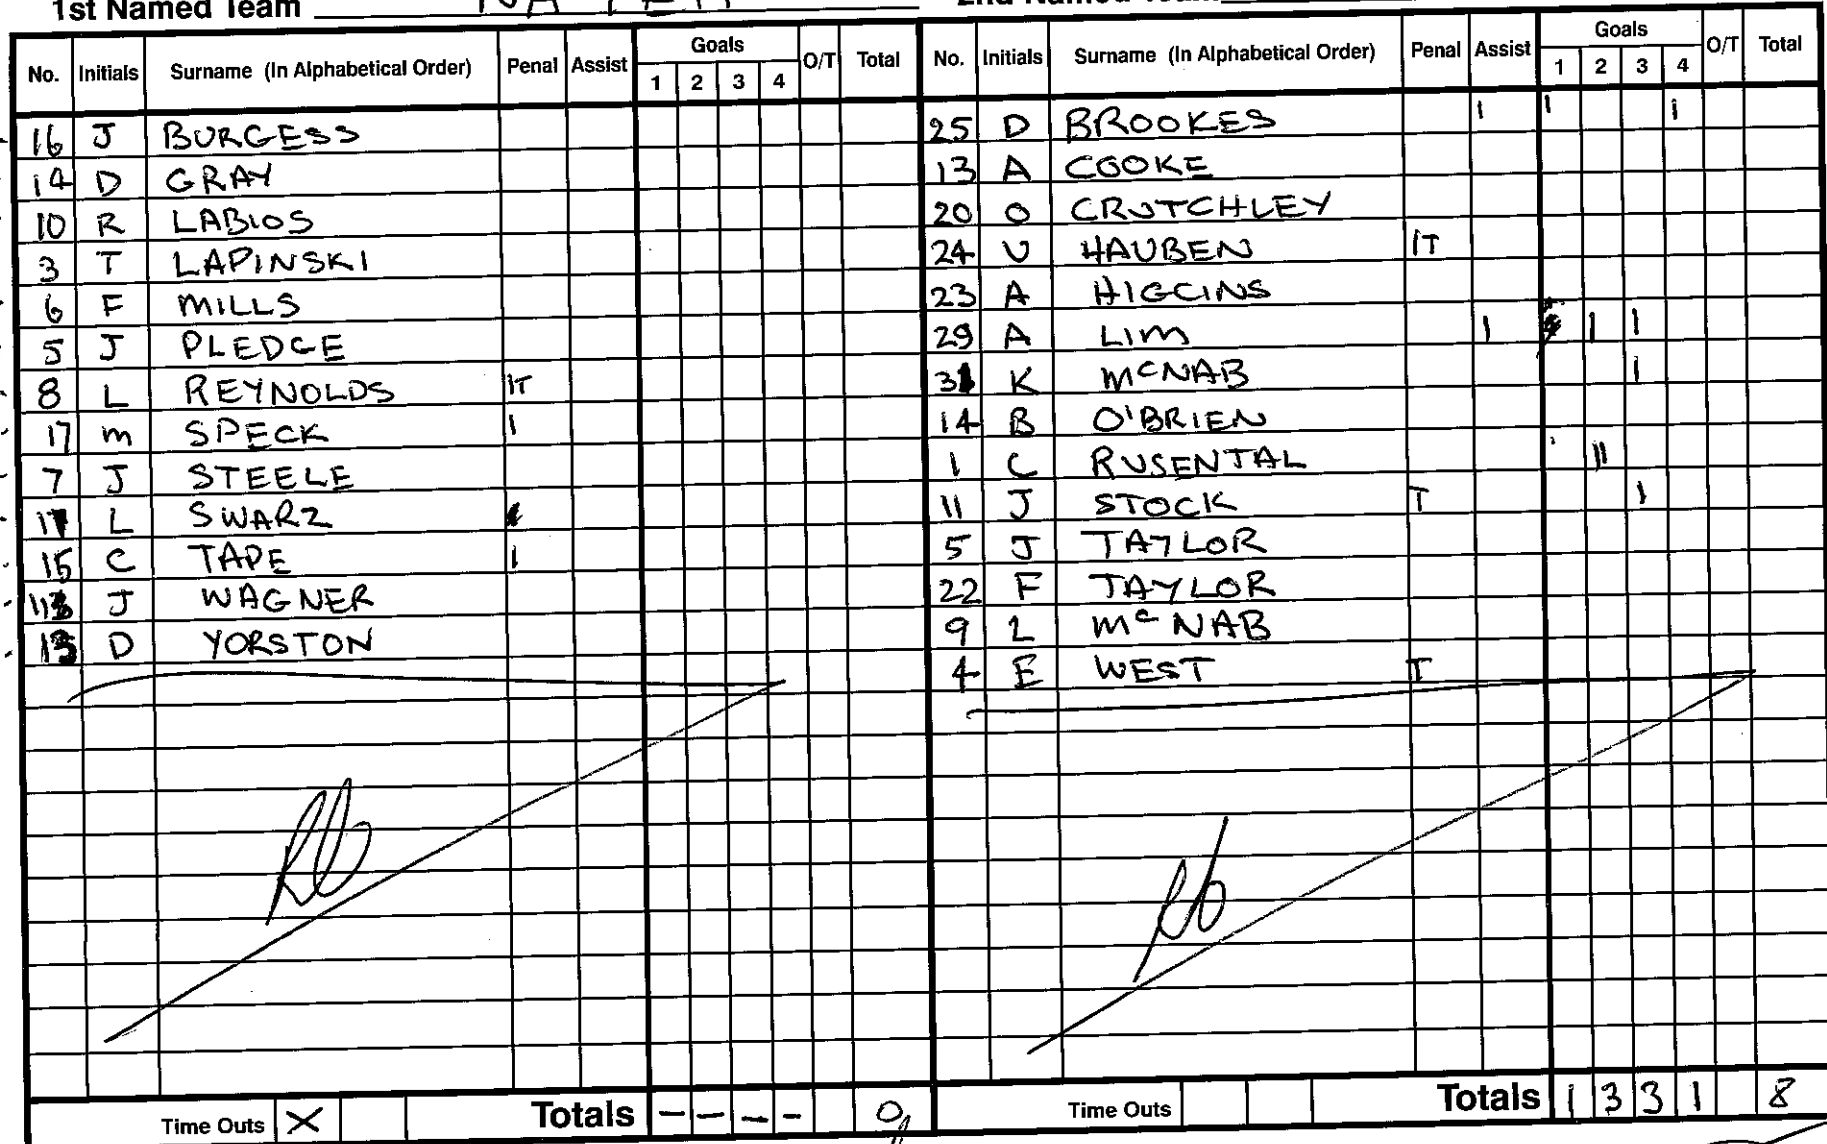 1st Named Team
No. Initials Surname (In Alphabetical Order) Penal Assist Goals 1 2 3 4 O/T Total
16 J BURGESS
14 D GRAY
10 R LABIOS
3 T LAPINSKI
6 F MILLS
5 J PLEDGE
8 L REYNOLDS IT
17 M SPECK I
7 J STEELE
L SWARZ
15 C TAPE I
J WAGNER
D YORSTON
Time Outs X Totals - - - - 0
No. Initials Surname (In Alphabetical Order) Penal Assist Goals 1 2 3 4 O/T Total
25 D BROOKES I I I
13 A COOKE
20 O CRUTCHLEY
24 U HAUBEN IT
23 A HIGGINS
29 A LIM I I I
K McNAB I
14 B O'BRIEN
1 C RUSENTAL II
11 J STOCK T I
5 J TAYLOR
22 F TAYLOR
9 L McNAB
4 E WEST T
Time Outs Totals 1 3 3 1 8